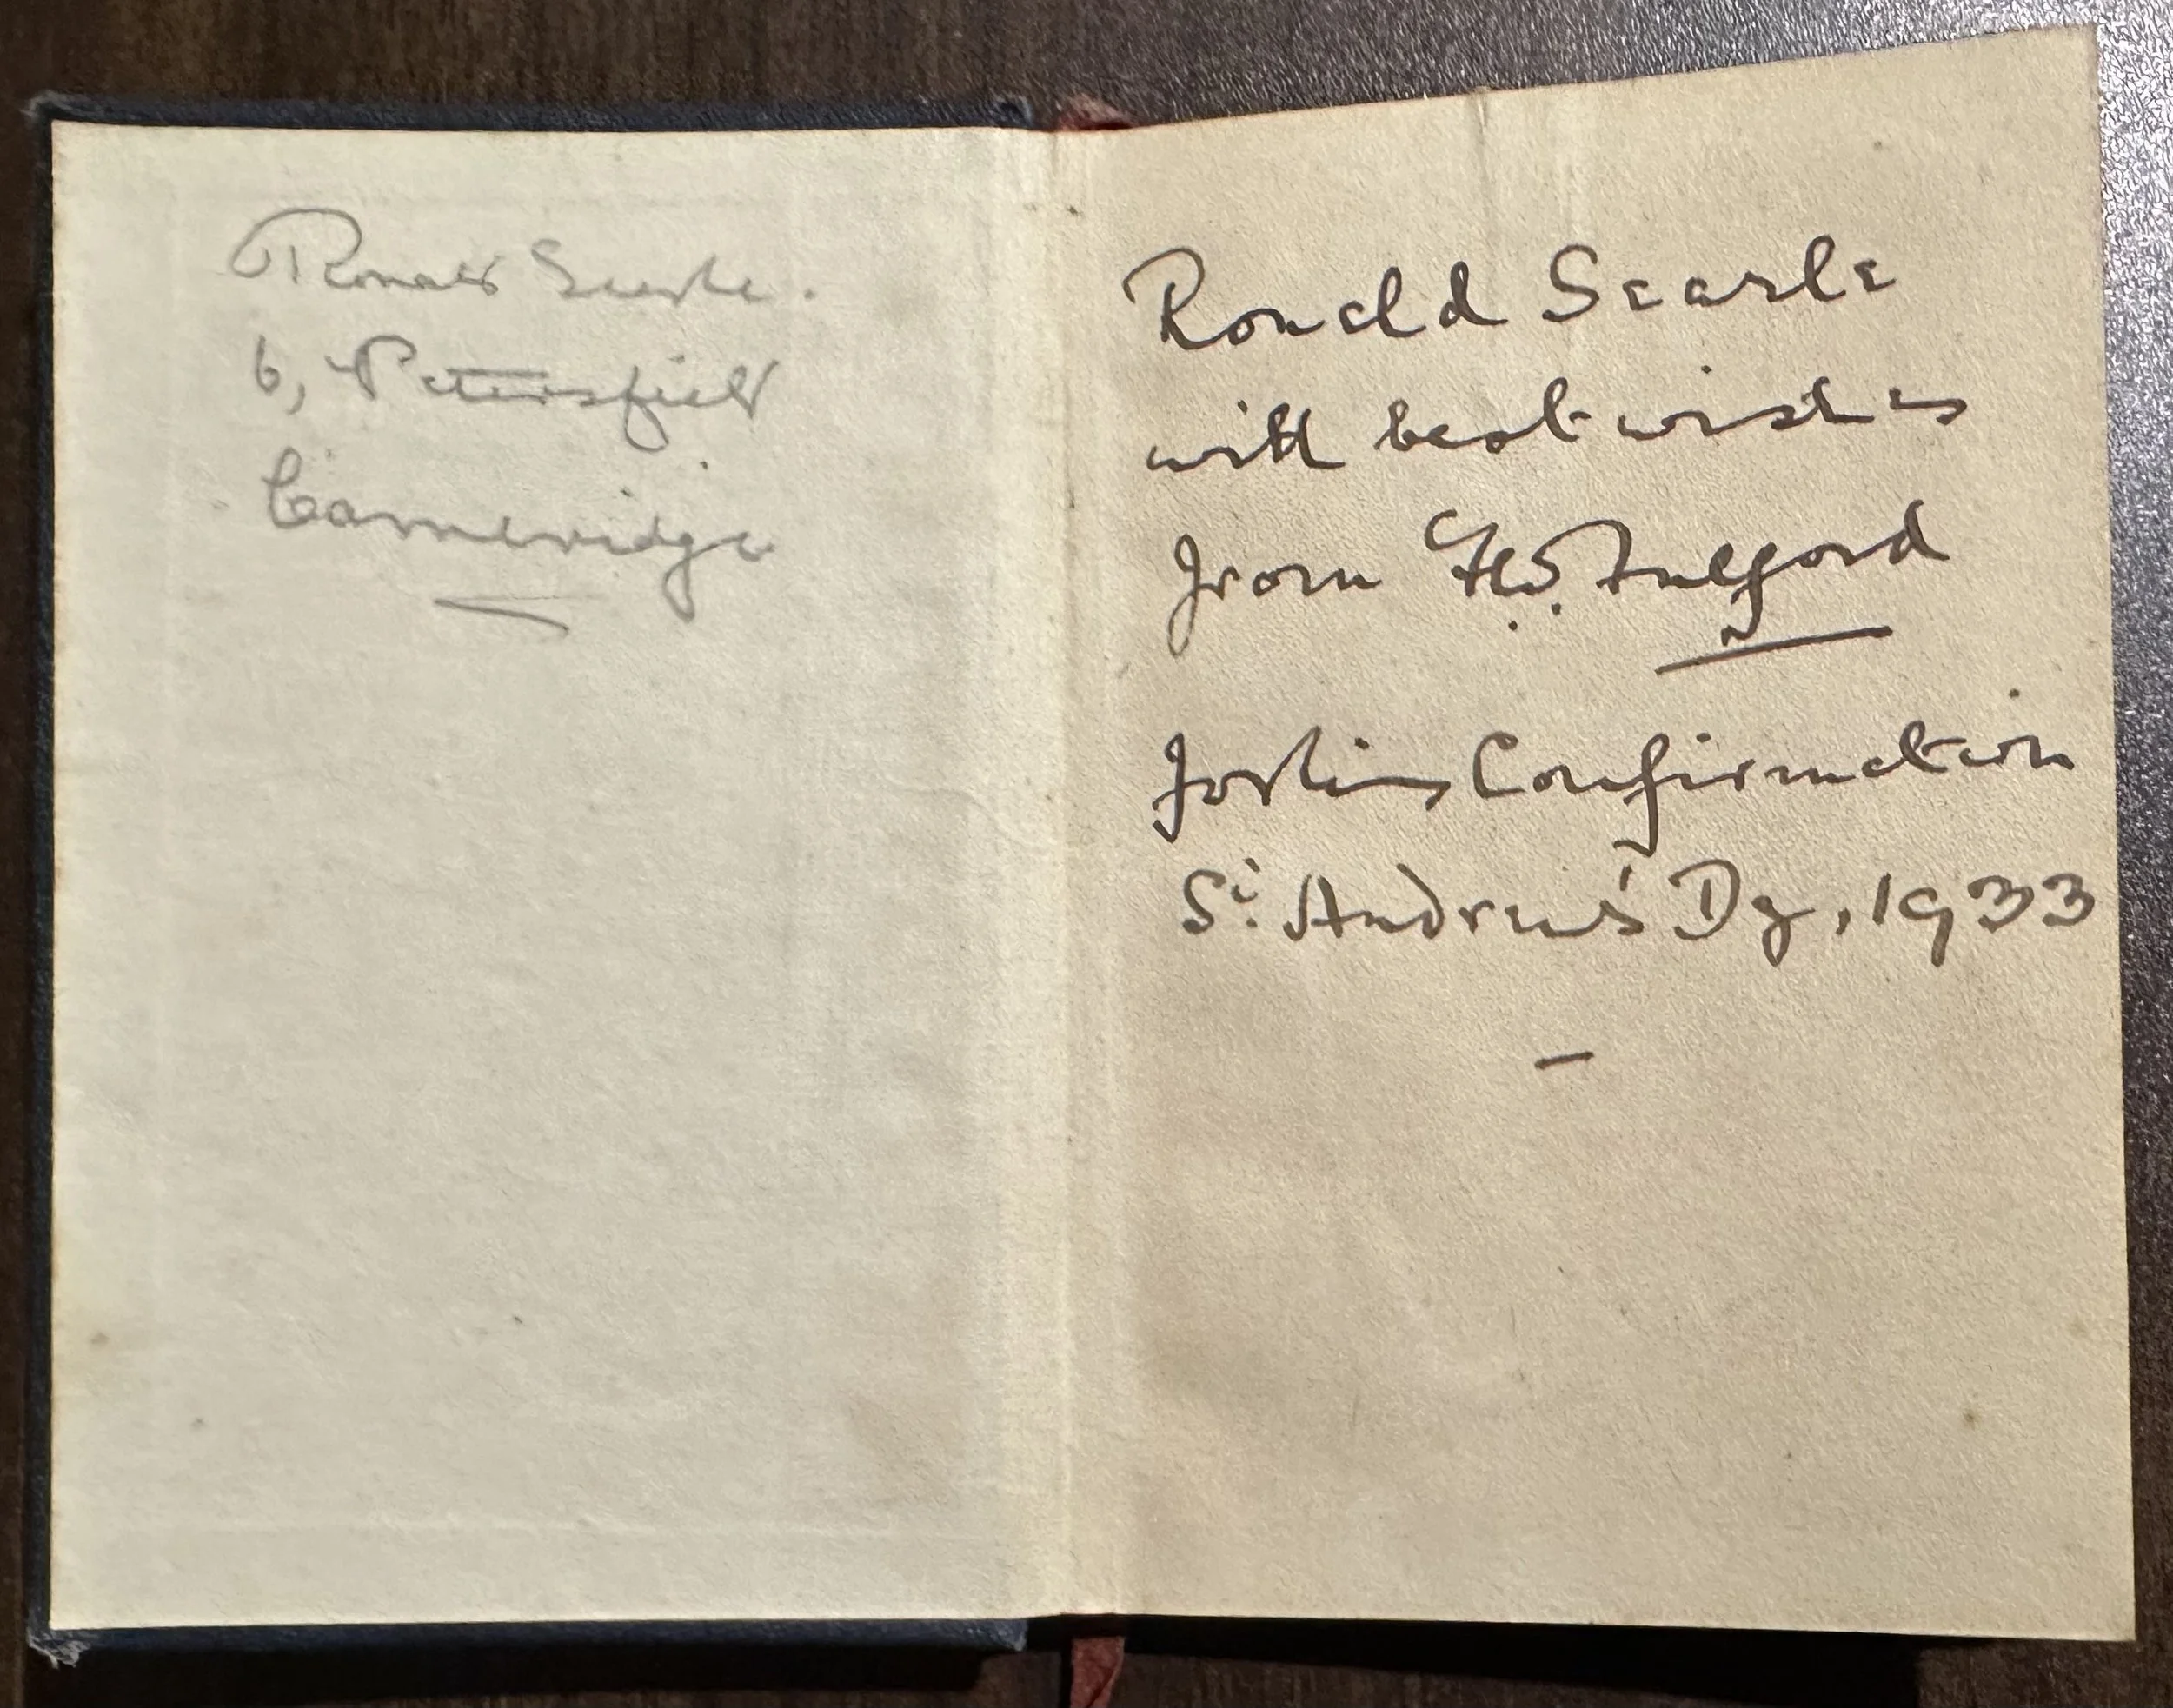 Ronald Searle.
6, Petersfield
Cambridge
Ronald Searle
with best wishes
from Fulford
for his Confirmation
St. Andrew's Dy, 1933